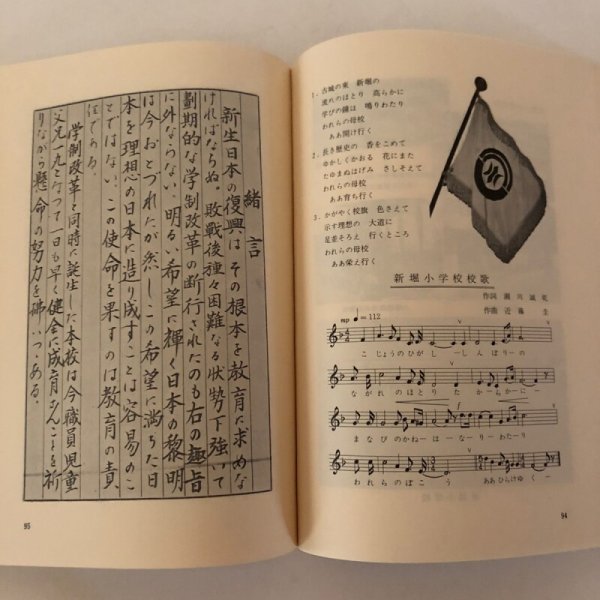 1. 古城の東　新堀の
流れのほとり　高らかに
学びの鐘は　鳴りわたり
われらの母校
ああ開け行く
2. 長き歴史の　香をこめて
ゆかしくかおる　花にまた
たゆまぬはげみ　さしそえて
われらの母校
ああ育ち行く
3. かがやく校旗　色さえて
示す理想の　大道に
足並そろえ　行くところ
われらの母校
ああ栄え行く
新堀小学校校歌
作詞
作曲 近藤 圭
mp ♩=112
こじょうのひがしーしんぼりーの
ながれのほとりたかーらーにー
まなびのかねーはーなーりーわたーり
われらのぼこう　ああひらけゆくー
94
緒言
新生日本の復興は、その根本を教育に求めな
ければならぬ。敗戦後種々困難なる状勢下強いて
劃期的な学制改革の断行されたのも右の趣旨
に外ならない。明るい希望に輝く日本の黎明
は今おとづれたが然しこの希望に満ちた日
本を理想の日本に造り成すことは容易のこ
とではない。この使命を果すのは教育の責
任である。
学制改革と同時に誕生した本校は今職員児童
父兄一丸となって一日も早く健全に成育せんことを祈
りながら懸命の努力を拂いつゝある。
95